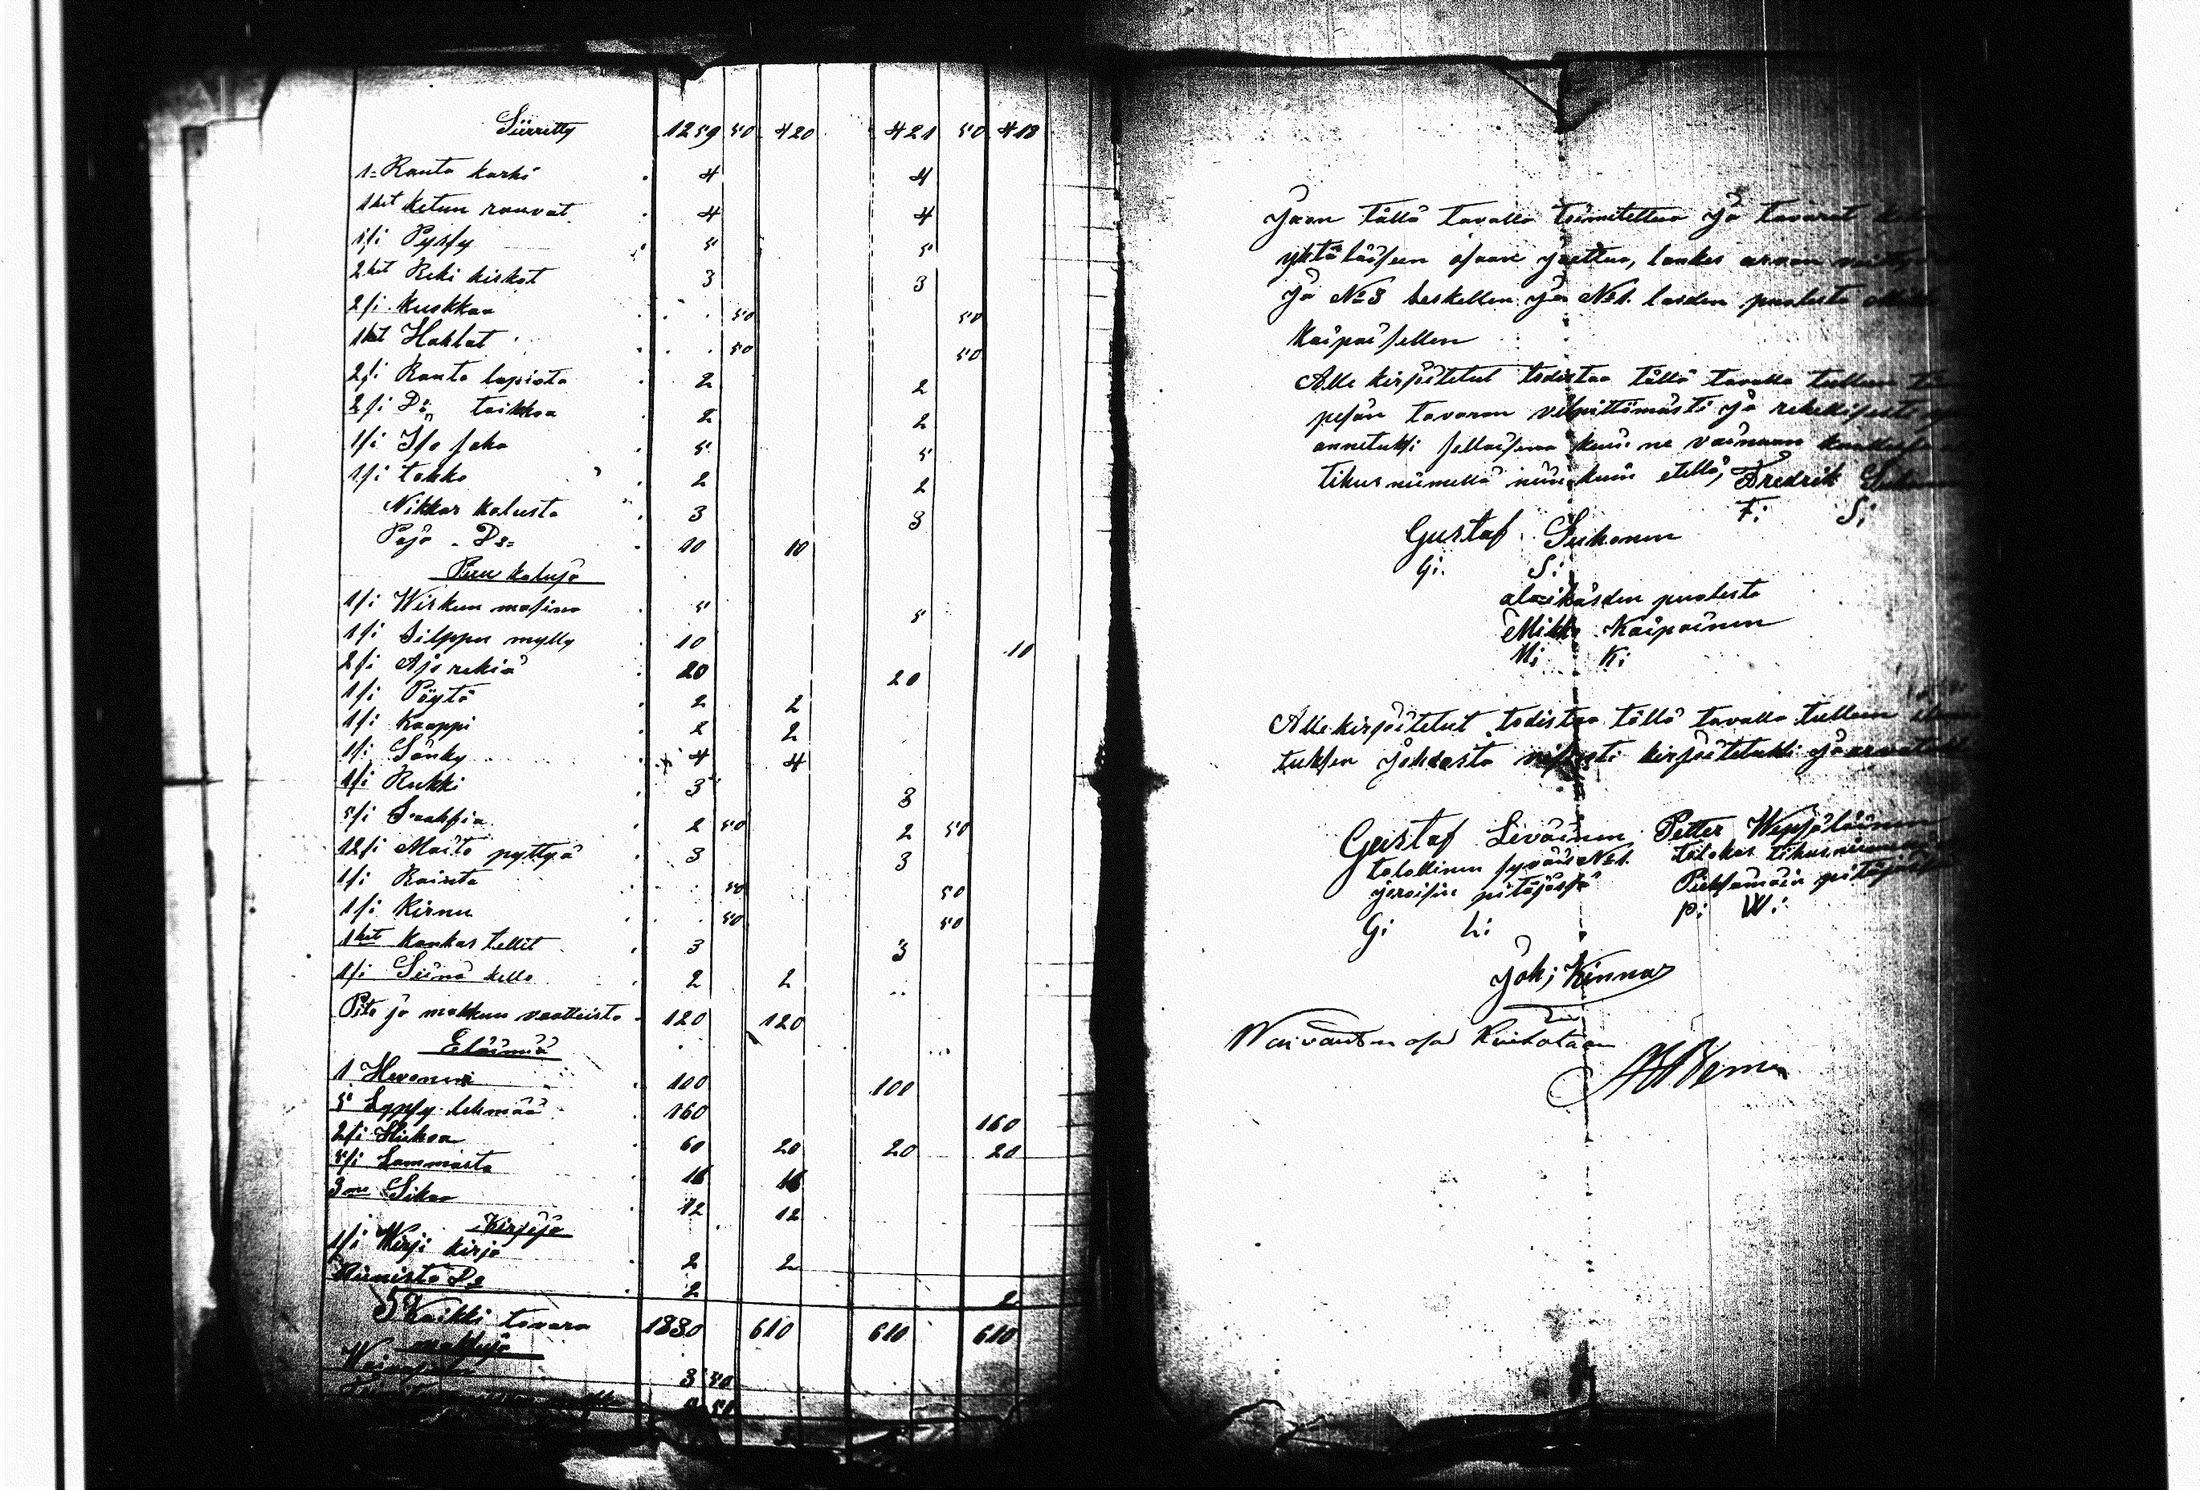 Siirretty 1259 50 420 421 50 418
1= Rauta karhi 4 4
1ket ketun rauvat 4 4
1/i Pyssy 5 5
2ket Reki kiskot 3 3
2/i kuokkaa 50 50
1ket Hahlat 50 50
2/i Rauta lapiota 2 2
2/i Do taikkoa 2 2
1/i Iso saha 5 5
1/i tahko 2 2
Nikkar kalusta 3 3
Paja Do= 10 10
Puu kaluja
1/i Wirkun masina 5 5
1/i Silppu mylly 10 10
2/i Ajo rekiä 20 20
1/i Pöytä 2 2
1/i Kaappi 2 2
1/i Sänky 4 4
1/i Rukki 3 3
5/i Saaksia 2 50 2 50
12/i Maito pyttyä 3 3
1/i Rainta 50 50
1/i Kirnu 50 50
1ket Kankas tellit 3 3
1/i Seinä kello 2 2
Pito ja makkun vaatteista 120 120
Eläimiä
1 Hevonen 100 100
5 Lypsy lehmää 160 160
2/i Hiehoa 60 20 20 20
5/i Lammasta 16 16
3me Sikaa 12 12
Kirjoja
1/i Wirji kirja 2 2
Do 2 2
Kaikki tavara 1830 610 610 610
maksuja
3 50
50
Jaon tällä tavalla toimitettua ja tavarat
yktäläiseen osaan jaettua, lankes arvan
ja No 3 leskellen ja No 1. lasden puolesta
Kaipaisellen
Allekirjoitetut todistaa tällä tavalla tulleen
pesän tavaran vilpittömästi ja rehellisesti
annetuksi sellaisena kuin ne vainaan
tikus nimellä niin kuin etellä, Fredrik
F: S:
Gustaf Suhonen
G: S:
alaikäsden puolesta
Mikko Kaipainen
M: K:
Allekirjoitetut todistaa tällä tavalla tulleen
tuksen johdosta kirjoitetuksi ja
Gustaf Leväinen Petter Wepsäläinen
talollinen syväis No 1. talokas tikus nimi
joroisiin pitäjässä Pieksämäin
G: L: P: W:
Joh; Kinnar
Waivaisten osa Kuitataan